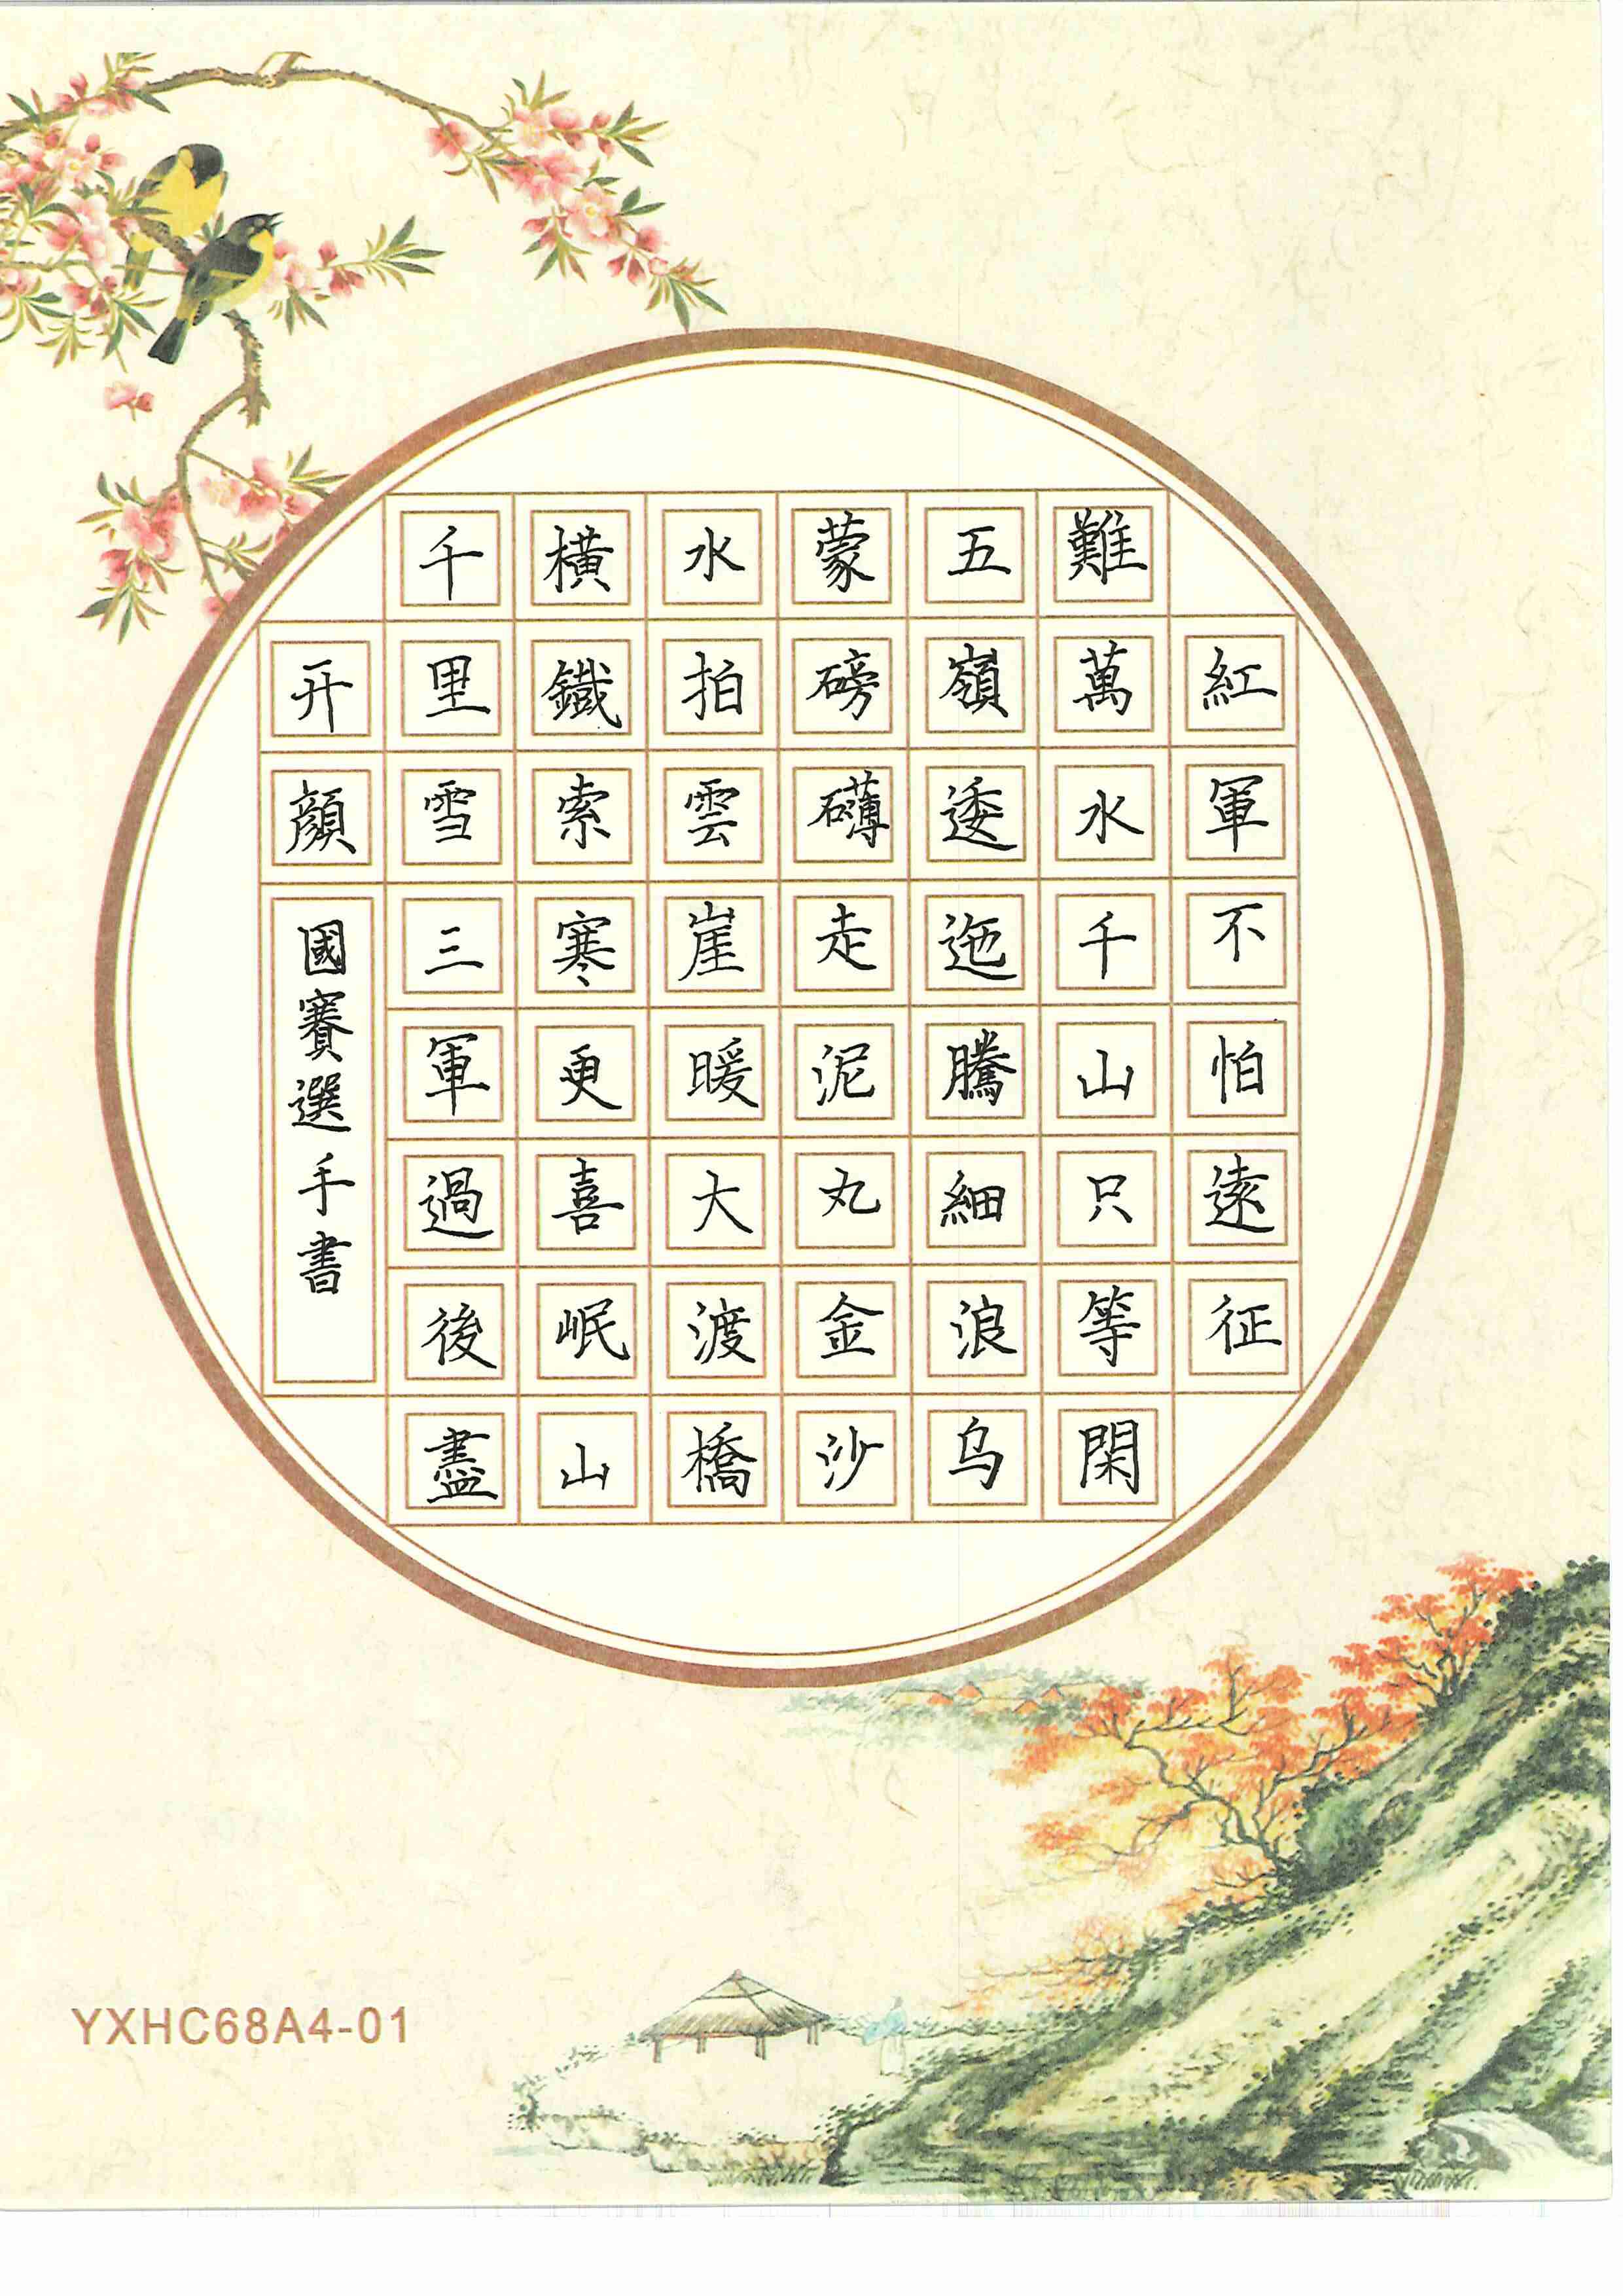 紅軍不怕遠征
難萬水千山只等閑
五嶺逶迤騰細浪乌
蒙磅礴走泥丸金沙
水拍雲崖暖大渡橋
橫鐵索寒更喜岷山
千里雪三軍過後盡
开顏
國賽選手書
YXHC68A4-01